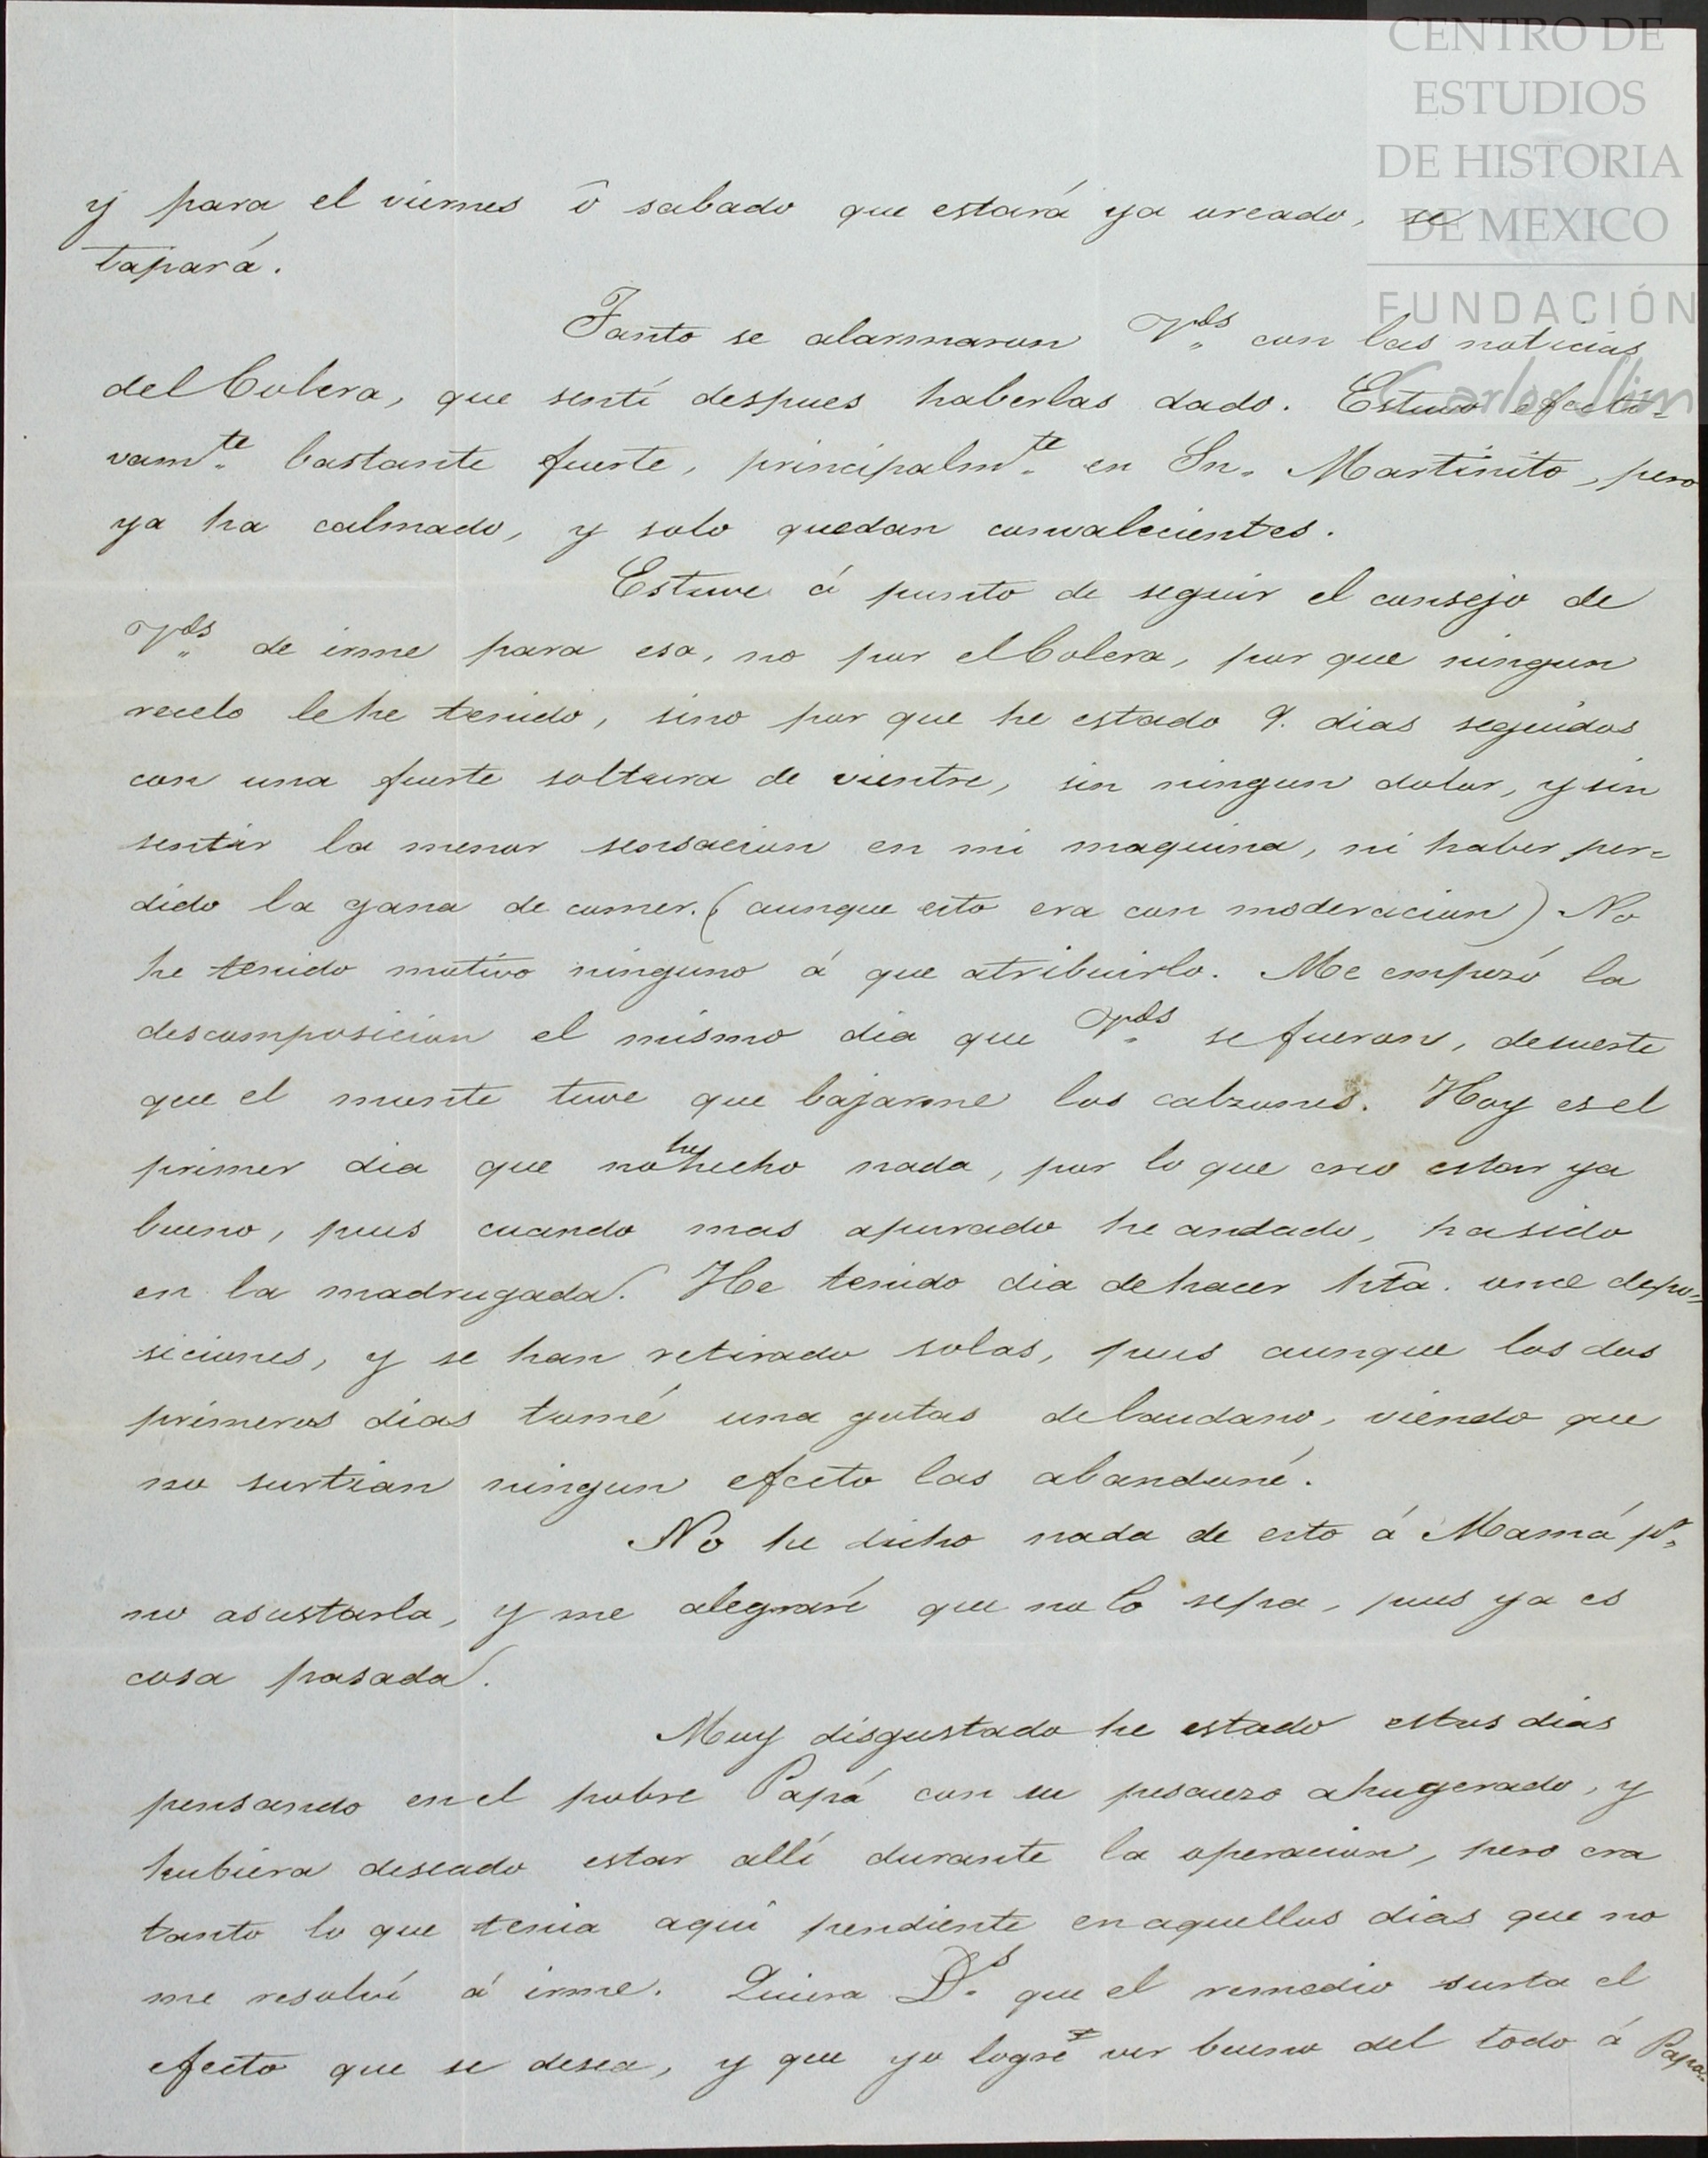 CENTRO DE
ESTUDIOS
DE HISTORIA
DE MEXICO
FUNDACIÓN
Carlos Slim
y para el viernes ô sabado que estará ya oreado, se
tapará.
Tanto se alarmaron Vds con las noticias
del Colera, que sentí despues haberlas dado. Estuvo efecti-
vamte bastante fuerte, principalmte en Sn. Martinito, pero
ya ha calmado, y solo quedan convalecientes.
Estuve á punto de seguir el consejo de
Vds de irme para esa, no por el Colera, por que ningun
recelo le he tenido, sino por que he estado 9. dias seguidos
con una fuerte soltura de vientre, sin ningun dolor, y sin
sentir la menor sensacion en mi maquina, ni haber per-
dido la gana de comer. (aunque esto era con moderacion) No
he tenido motivo ninguno á que atribuirlo. Me empezó la
descomposicion el mismo dia que Vds se fueron, desuerte
que el monte tuve que bajarme los calzones. Hoy es el
primer dia que no he hecho nada, por lo que creo estar ya
bueno, pues cuando mas apurado he andado, ha sido
en la madrugada. He tenido dia de hacer hta. once depo-
siciones, y se han retirado solas, pues aunque los dos
primeros dias tomé una gotas de laudano, viendo que
no surtian ningun efecto las abandoné.
No he dicho nada de esto á Mamá pr
no asustarla, y me alegraré que no lo sepa, pues ya es
cosa pasada.
Muy disgustado he estado estos dias
pensando en el pobre Papá con su pescuezo ahugerado, y
hubiera deseado estar allí durante la operacion, pero era
tanto lo que tenia aquí pendiente en aquellos dias que no
me resolví á irme. Quiera Ds que el remedio surta el
efecto que se desea, y que yo logre ver bueno del todo á Papá.